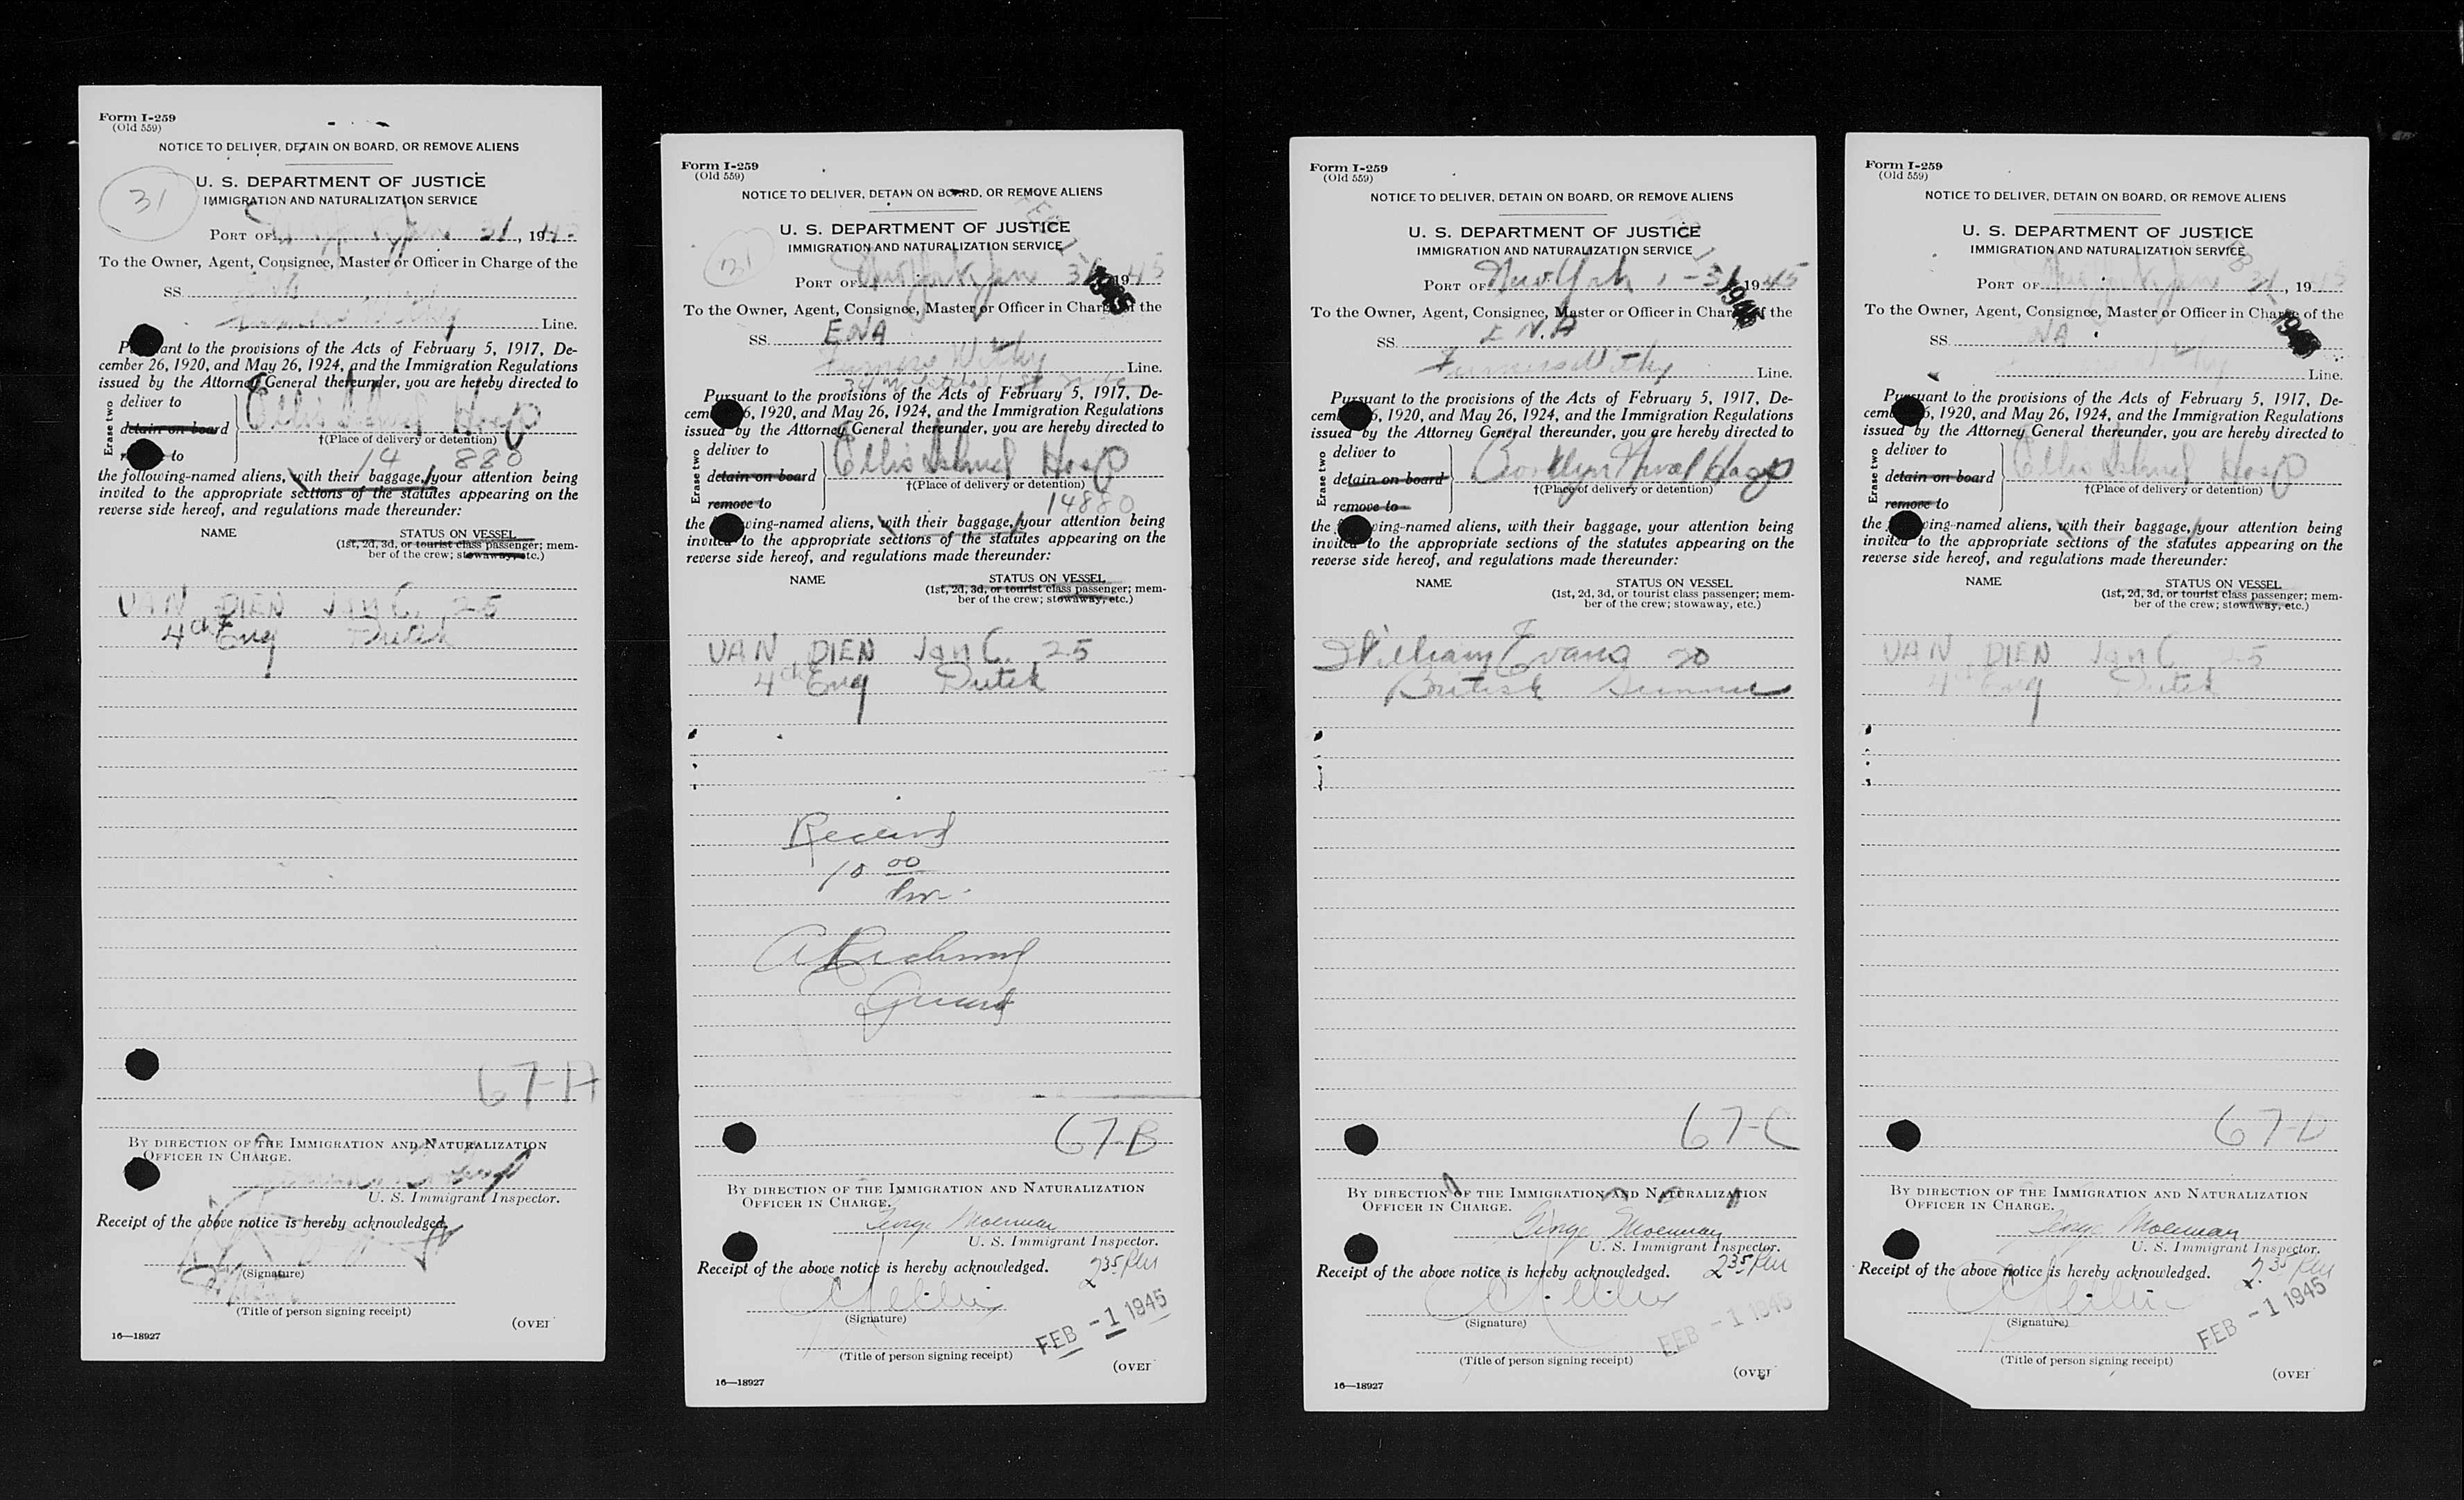 Form I-259
(Old 559)
NOTICE TO DELIVER, DETAIN ON BOARD, OR REMOVE ALIENS
31
U. S. DEPARTMENT OF JUSTICE
IMMIGRATION AND NATURALIZATION SERVICE
PORT OF New York Jan 31, 1945
To the Owner, Agent, Consignee, Master or Officer in Charge of the
SS
Furness Withy Line.
Pursuant to the provisions of the Acts of February 5, 1917, De-
cember 26, 1920, and May 26, 1924, and the Immigration Regulations
issued by the Attorney General thereunder, you are hereby directed to
Erase two
deliver to
detain on board
to
Ellis Island Hosp
†(Place of delivery or detention)
14 880
the following-named aliens, with their baggage, your attention being
invited to the appropriate sections of the statutes appearing on the
reverse side hereof, and regulations made thereunder:
NAME STATUS ON VESSEL
(1st, 2d, 3d, or tourist class passenger; mem-
ber of the crew; stowaway, etc.)
VAN DIEN Jan C. 25
4th Eng Dutch
67-A
BY DIRECTION OF THE IMMIGRATION AND NATURALIZATION
OFFICER IN CHARGE.
U. S. Immigrant Inspector.
Receipt of the above notice is hereby acknowledged.
(Signature)
(Title of person signing receipt)
(OVER
16—18927
Form I-259
(Old 559)
NOTICE TO DELIVER, DETAIN ON BOARD, OR REMOVE ALIENS
31
U. S. DEPARTMENT OF JUSTICE
IMMIGRATION AND NATURALIZATION SERVICE
PORT OF New York Jan 31 1945
To the Owner, Agent, Consignee, Master or Officer in Charge of the
SS ENA
Furness Withy Line.
Pursuant to the provisions of the Acts of February 5, 1917, De-
cember 26, 1920, and May 26, 1924, and the Immigration Regulations
issued by the Attorney General thereunder, you are hereby directed to
Erase two
deliver to
detain on board
remove to
Ellis Island Hosp
†(Place of delivery or detention)
14880
the following-named aliens, with their baggage, your attention being
invited to the appropriate sections of the statutes appearing on the
reverse side hereof, and regulations made thereunder:
NAME STATUS ON VESSEL
(1st, 2d, 3d, or tourist class passenger; mem-
ber of the crew; stowaway, etc.)
VAN DIEN Jan C. 25
4th Eng Dutch
Received
10 00
Pm.
Guard
67-B
BY DIRECTION OF THE IMMIGRATION AND NATURALIZATION
OFFICER IN CHARGE.
George Moerman
U. S. Immigrant Inspector.
Receipt of the above notice is hereby acknowledged. 2 35 PM
(Signature)
FEB -1 1945
(Title of person signing receipt)
(OVER
16—18927
Form I-259
(Old 559)
NOTICE TO DELIVER, DETAIN ON BOARD, OR REMOVE ALIENS
U. S. DEPARTMENT OF JUSTICE
IMMIGRATION AND NATURALIZATION SERVICE
PORT OF New York 1-31 1945
To the Owner, Agent, Consignee, Master or Officer in Charge of the
SS E.N.A
Furness Withy Line.
Pursuant to the provisions of the Acts of February 5, 1917, De-
cember 26, 1920, and May 26, 1924, and the Immigration Regulations
issued by the Attorney General thereunder, you are hereby directed to
Erase two
deliver to
detain on board
remove to
Brooklyn Naval Hosp
†(Place of delivery or detention)
the following-named aliens, with their baggage, your attention being
invited to the appropriate sections of the statutes appearing on the
reverse side hereof, and regulations made thereunder:
NAME STATUS ON VESSEL
(1st, 2d, 3d, or tourist class passenger; mem-
ber of the crew; stowaway, etc.)
William Evans 20
British Gunner
67-C
BY DIRECTION OF THE IMMIGRATION AND NATURALIZATION
OFFICER IN CHARGE.
George Moerman
U. S. Immigrant Inspector.
Receipt of the above notice is hereby acknowledged. 2 35 PM
(Signature)
FEB -1 1945
(Title of person signing receipt)
(OVER
16—18927
Form I-259
(Old 559)
NOTICE TO DELIVER, DETAIN ON BOARD, OR REMOVE ALIENS
U. S. DEPARTMENT OF JUSTICE
IMMIGRATION AND NATURALIZATION SERVICE
PORT OF New York Jan 31, 1945
To the Owner, Agent, Consignee, Master or Officer in Charge of the
SS ENA
Line.
Pursuant to the provisions of the Acts of February 5, 1917, De-
cember 26, 1920, and May 26, 1924, and the Immigration Regulations
issued by the Attorney General thereunder, you are hereby directed to
Erase two
deliver to
detain on board
remove to
Ellis Island Hosp
†(Place of delivery or detention)
the following-named aliens, with their baggage, your attention being
invited to the appropriate sections of the statutes appearing on the
reverse side hereof, and regulations made thereunder:
NAME STATUS ON VESSEL
(1st, 2d, 3d, or tourist class passenger; mem-
ber of the crew; stowaway, etc.)
VAN DIEN Jan C 25
4th Eng Dutch
67-D
BY DIRECTION OF THE IMMIGRATION AND NATURALIZATION
OFFICER IN CHARGE.
George Moerman
U. S. Immigrant Inspector.
Receipt of the above notice is hereby acknowledged. 2 35 PM
(Signature)
FEB -1 1945
(Title of person signing receipt)
(OVER